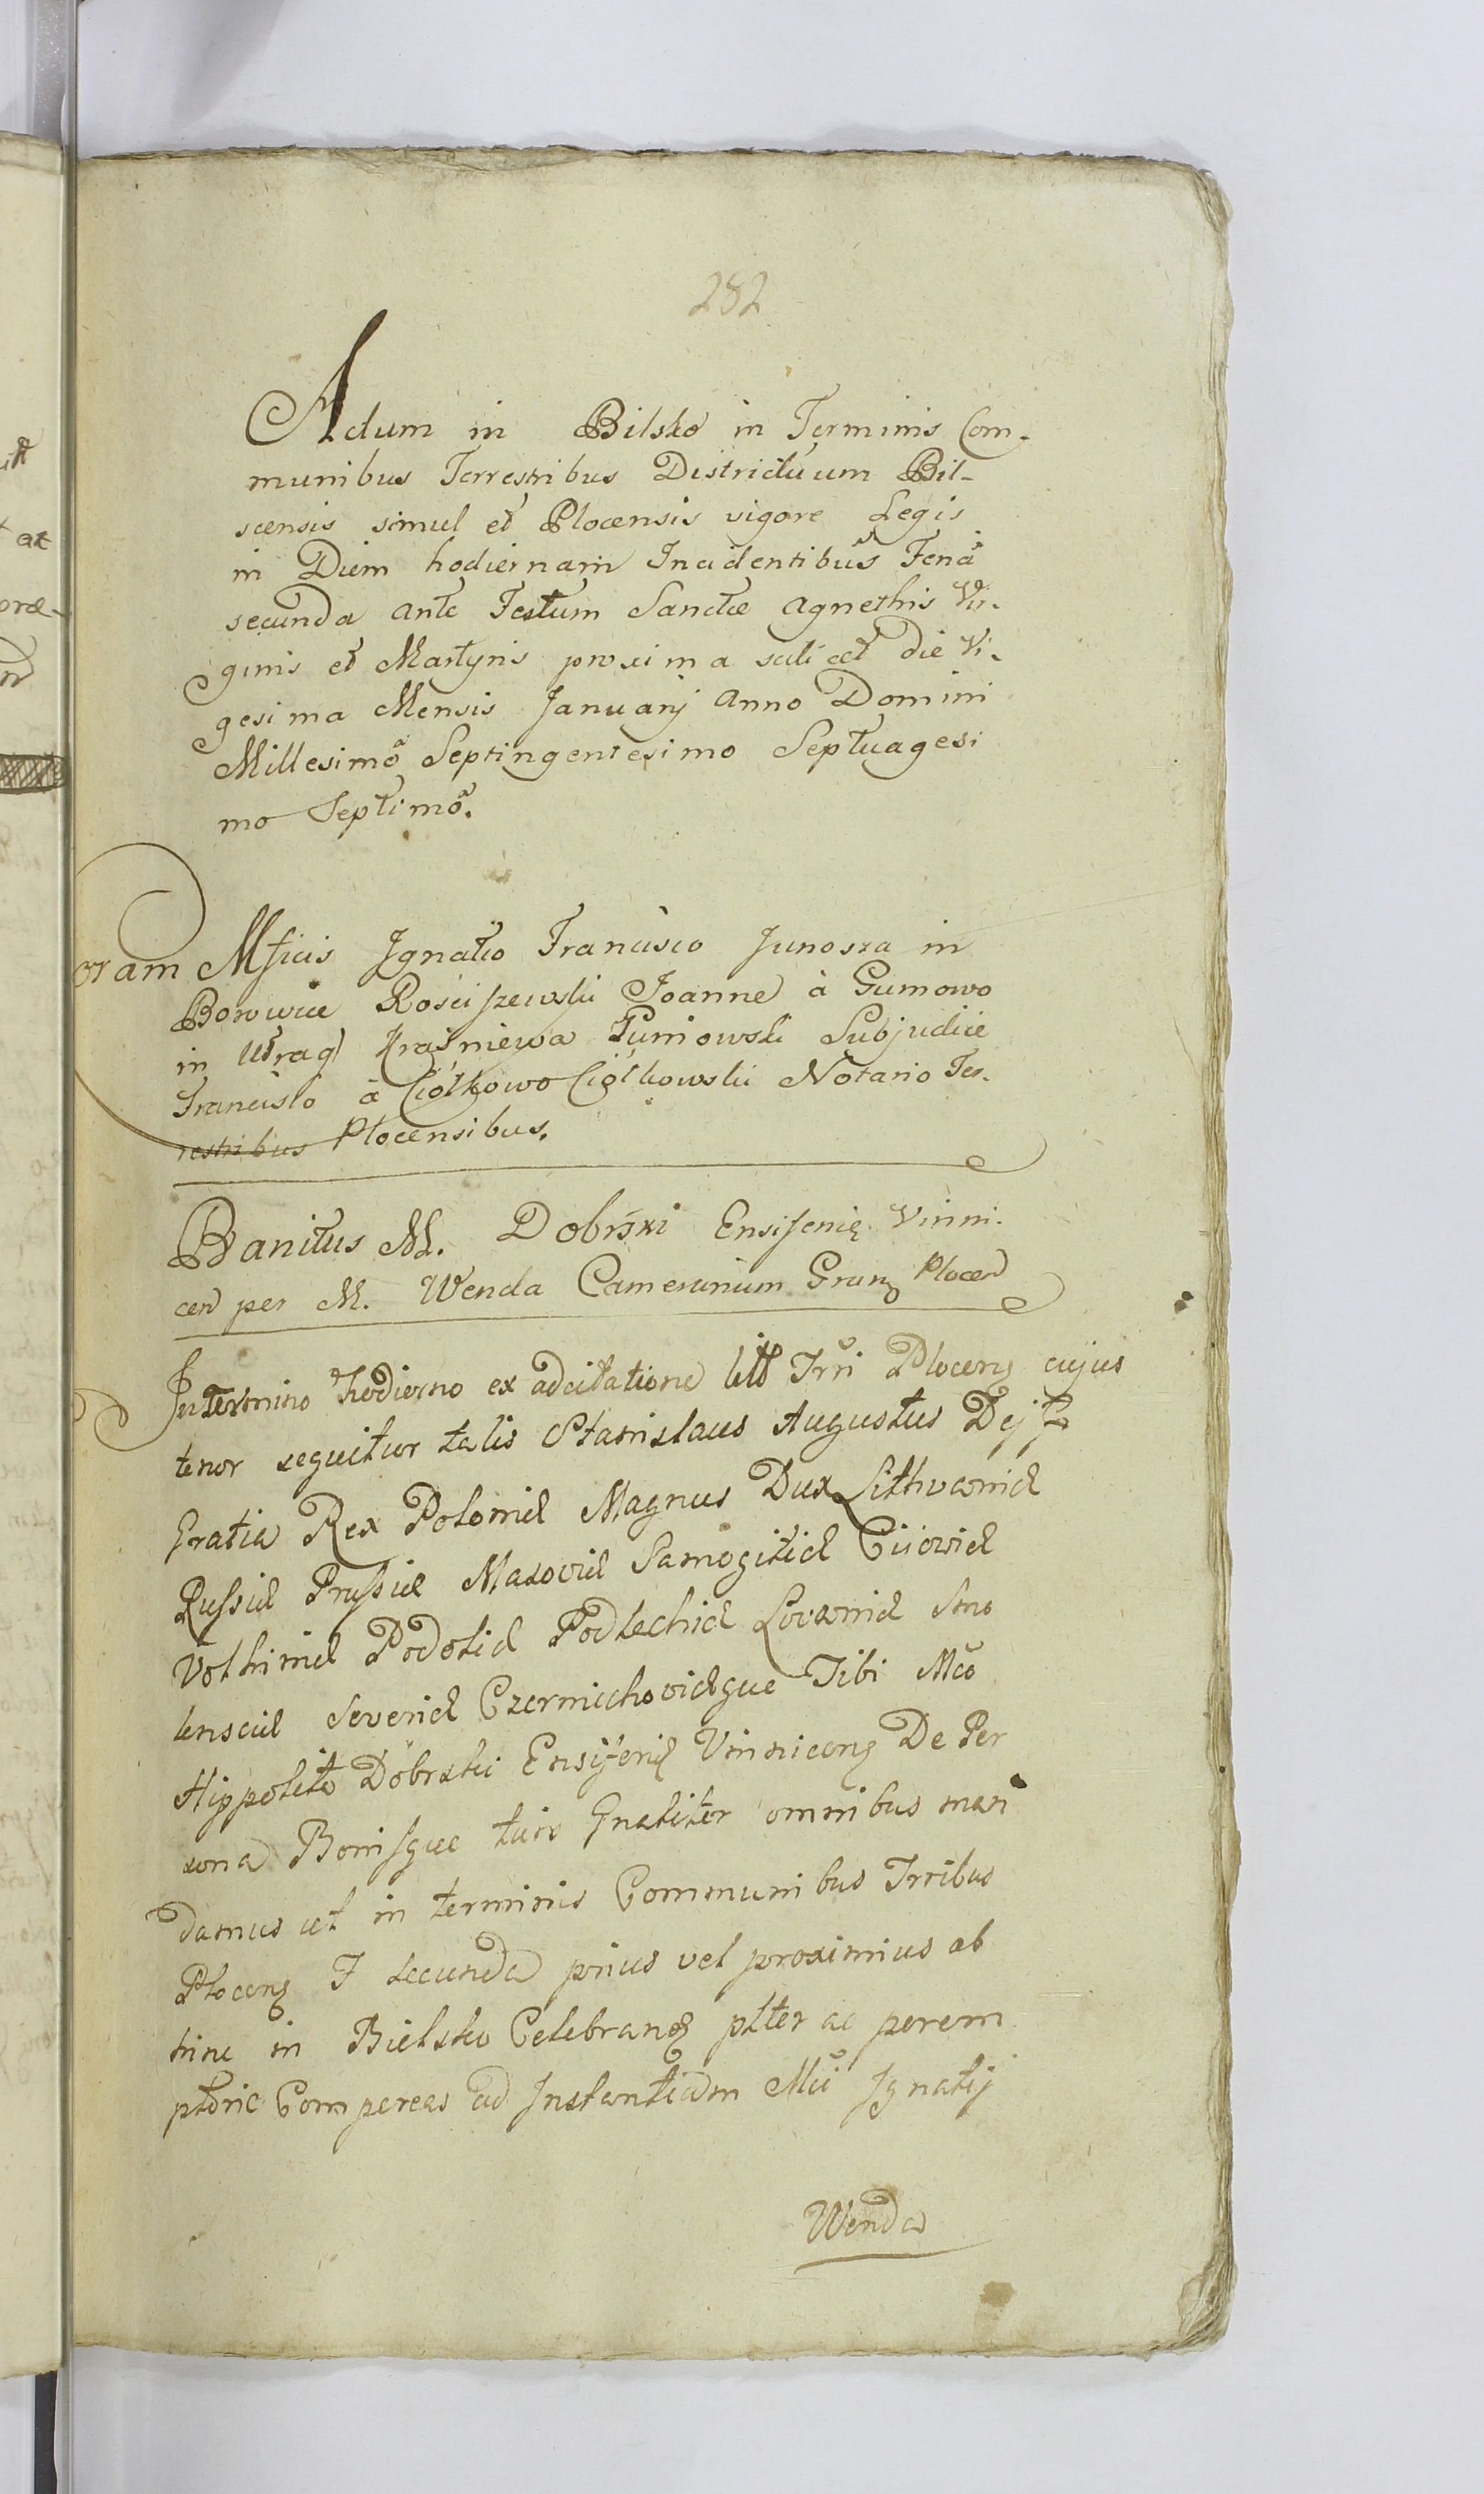 282
Actum in Bilsko in Terminis Com-
munibus Terrestribus Districtuum Bil-
scensis simul et Plocensis vigore Legis
in Diem hodiernam Incidentibus Feria
secunda ante Festum Sanctæ Agnethis Vir-
ginis et Martyris proxima scilicet die Vi-
gesima Mensis Januarij Anno Domini
Millesimo Septingentesimo Septuagesi
mo Septimo.
Coram Mficis Ignatio Francisco Junosza in
Borowice Rościszewski Joanne à Gumowo
in Utraq Kraśniewa Gumowski Subjudice
Francisco à Ciółkowo Ciółkowski Notario Ter-
restribus Plocensibus.
Banitus M. Dobrski Ensiferię Vinni-
cen per M. Wenda Camerarium Granz Plocen
In termino hodierno ex adcitatione litt Trri Plocenz cujus
tenor sequitur talis Stanislaus Augustus Dej
Gratia Rex Poloniæ Magnus Dux Lithvaniæ
Russiæ Prussiæ Masoviæ Samogitiæ Kiioviæ
Volhiniæ Podoliæ Podlachiæ Livoniæ Smo
lensciæ Severiæ Czerniechoviæque Tibi Mco
Hippolito Dobrski Ensiferię Vinnicenz De Per
sona Bonisque tuis Gnaliter omnibus man
damus ut in terminis Communibus Trribus
Plocenz F secunda prius vel proximius ab
hinc in Bielsko Celebranz plter ac perem
ptorie Compereas ad Instantiam Mci Ignatij
Wenda